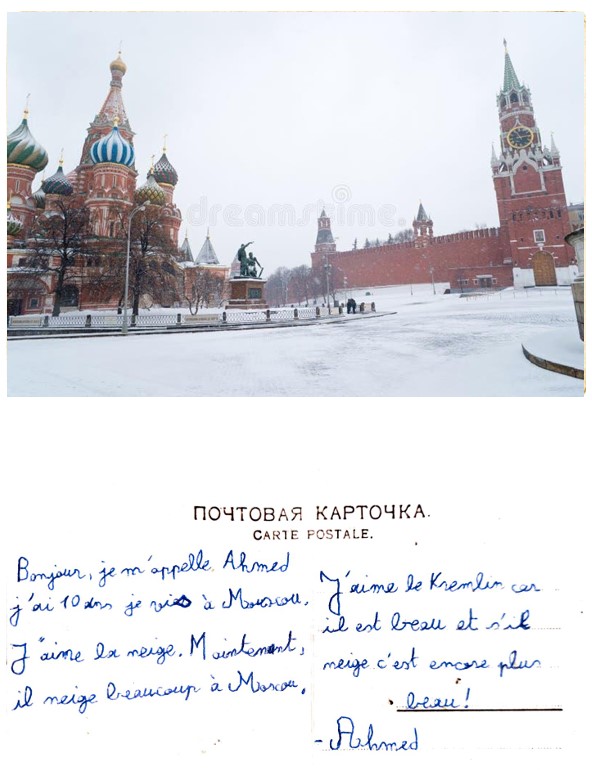 dreamstime.
ПОЧТОВАЯ КАРТОЧКА.
CARTE POSTALE.
Bonjour, je m'appelle Ahmed
j'ai 10 ans je vis à Mouscou.
J'aime la neige. Maintenant,
il neige beaucoup à Moscou.
J'aime le Kremlin car
il est beau et s'il
neige c'est encore plus
beau!
- Ahmed